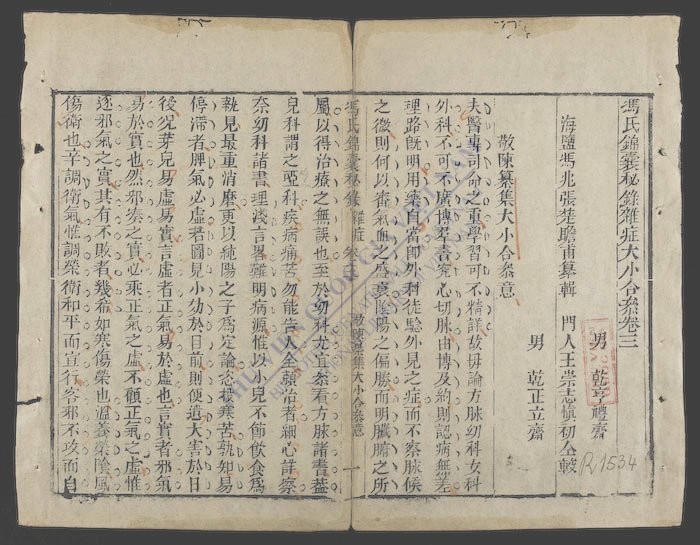 馮氏錦囊秘錄雜症大小合參卷三
海鹽馮兆張楚瞻甫纂輯 門人王崇志愼初仝較
男 乾亨禮齋
男 乾正立齋
敬陳纂集大小合參意
夫醫專司命之重學習可不精詳故毋論方脉幼科女科
外科不可不廣博羣書究心切脉由博及約則認病無差
理路旣明用藥自當卽外科徒騐外見之症而不察脉候
之微則何以審氣血之盛衰陰陽之偏勝而明臟腑之所
馮氏錦囊秘錄 雜症 卷三 敬陳纂集大小合參意 一
屬以得治療之無誤也至於幼科尤宜叅看方脉諸書葢
兒科謂之啞科疾病痛苦勿能告人全賴治者細心詳察
奈幼科諸書理淺言畧難明病源惟以小兒不節飲食爲
執見最重消磨更以純陽之子爲定論恣投寒苦孰知易
停滯者脾氣必虛者圖見小効於目前則便遺大害於日
後况芽兒易虛易實言虛者正氣易於虛也言實者邪氣
易於實也然邪湊之實必乘正氣之虛不顧正氣之虛惟
逐邪氣之實其有不敗者幾希如寒傷榮也溫養榮陰風
傷衛也辛調衛氣惟調榮衛和平而宣行客邪不攻而自
R.1534